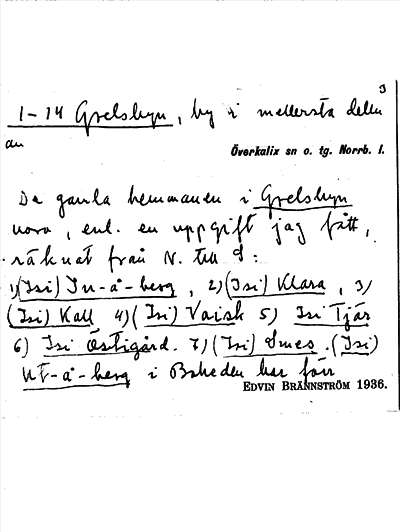 3
1-14 Grelsbyn, by i mellersta delen
av
Överkalix sn o. tg. Norrb. l.
De gamla hemmanen i Grelsbyn
voro, enl. en uppgift jag fått,
räknat från N. till S:
1) (Isi) In-å-berg, 2) (Isi) Klara, 3)
(Isi) Kall 4) (Isi) Vaisk 5) Isi Tjär
6) Isi Östigård. 7) (Isi) Smes. (Isi)
Ut-å-berg i Boheden har förr
EDVIN BRÄNNSTRÖM 1936.